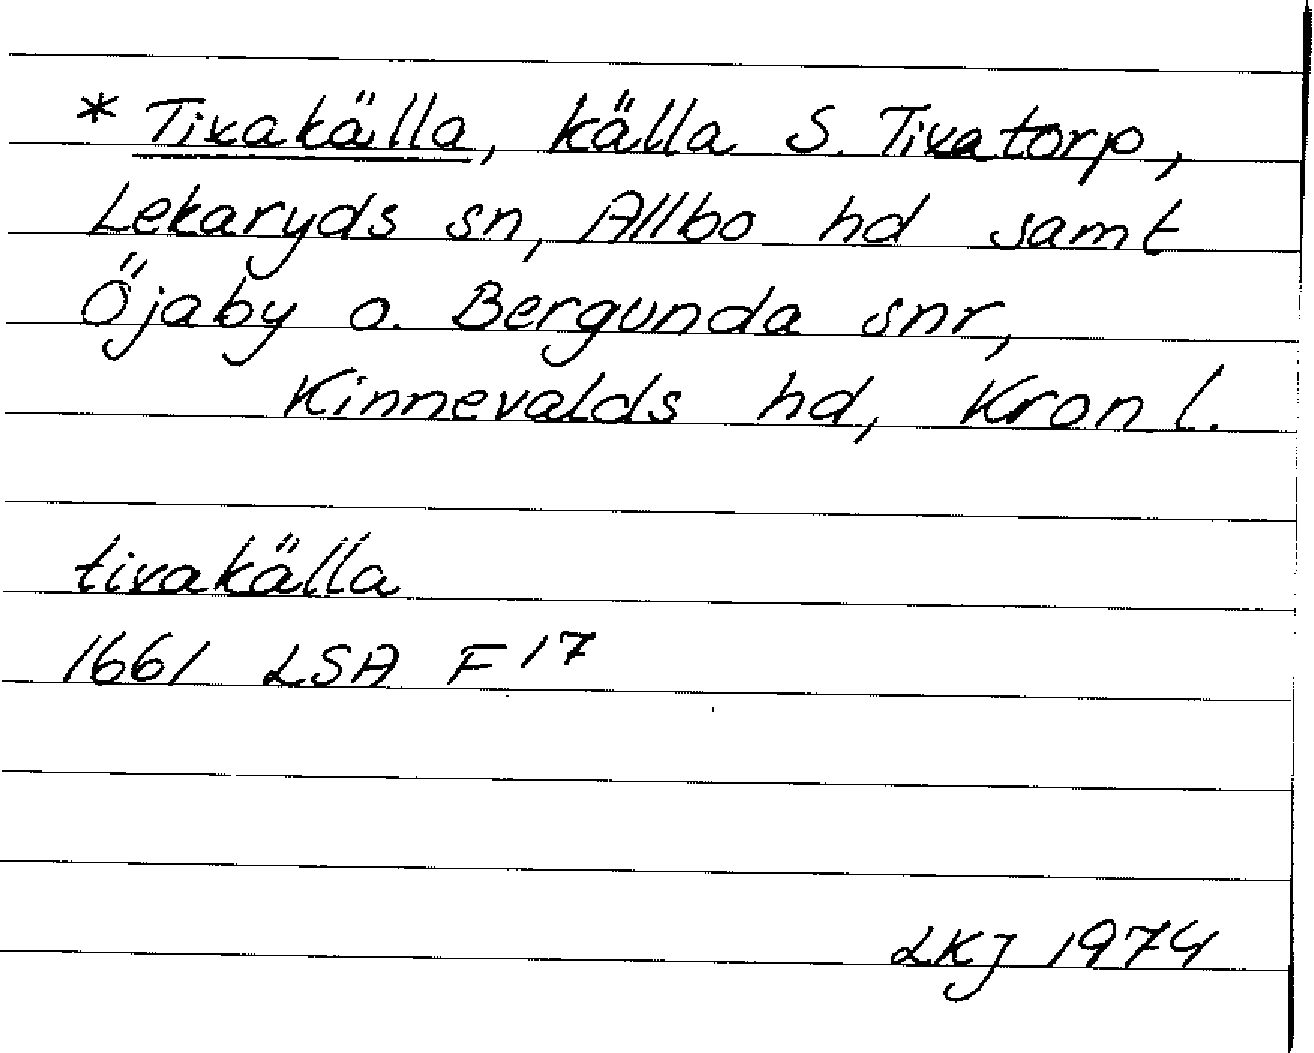 * Tixakälla, källa S. Tixatorp,
Lekaryds sn, Allbo hd samt
Öjaby o. Bergunda snr,
Kinnevalds hd, Kron l.
tixakälla
1661 LSA F 17
LKJ 1974